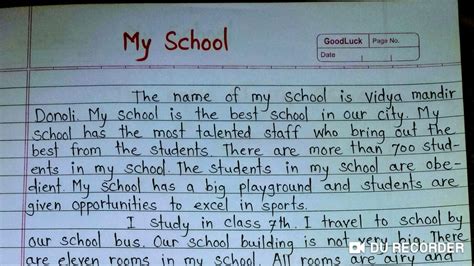 My School
GoodLuck
Page No.
Date
The name of my school is Vidya mandir
Donoli. My school is the best school in our city. My
school has the most talented staff who bring out the
best from the students. There are more than 700 stud-
ents in my school. The students in my school are obe-
dient. My school has a big playground and students are
given opportunities to excel in sports.
I study in class 7th. I travel to school by
our school bus. Our school building is not very big. There
are eleven rooms in my school. All rooms are airy and
DU RECORDER